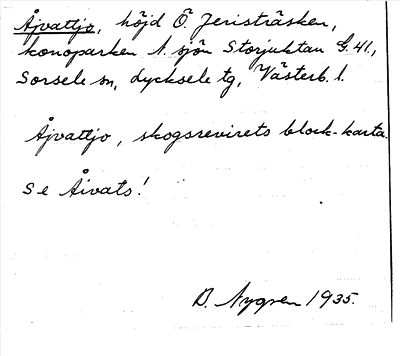 Åjvattjo, höjd Ö. Jeristräsken,
konoparken N. sjön Storjuktan G. 41,
Sorsele sn, Lycksele tg, Västerb. l.
Åjvattjo, skogsrevirets block-karta.
Se Åivats!
B. Nygren 1935.